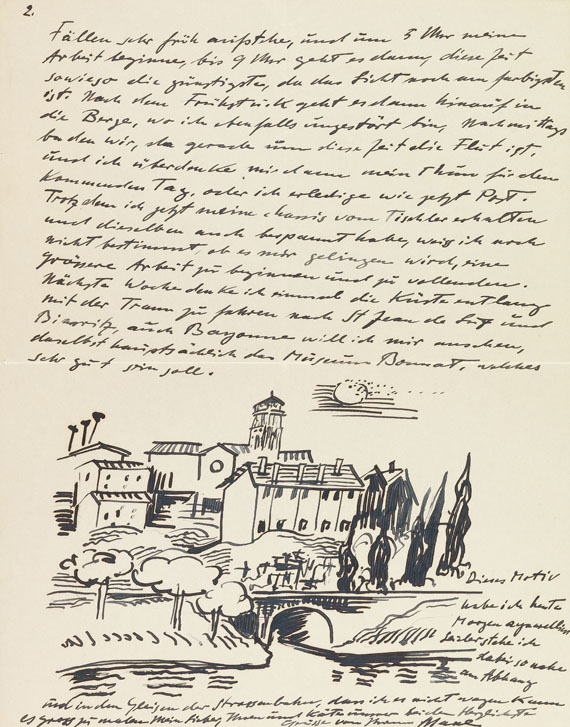 2.
Fällen sehr früh aufstehe, und um 5 Uhr meine
Arbeit beginne, bis 9 Uhr geht es dann, diese Zeit
sowieso die günstigste, da das Licht noch am farbigsten
ist. Nach dem Frühstück geht es dann hinauf in
die Berge, wo ich ebenfalls ungestört bin, Nachmittags
baden wir, da gerade um diese Zeit die Flut ist,
und ich überdenke mir dann mein Thun für den
kommenden Tag, oder ich erledige wie jetzt Post.
Trotzdem ich jetzt meine chassis vom Tischler erhalten
und dieselben auch bespannt habe, weiss ich noch
nicht bestimmt, ob es mir gelingen wird, eine
grössere Arbeit zu beginnen und zu vollenden.
Nächste Woche denke ich einmal die Küste entlang
mit der Tram zu fahren nach St Jean de Luz und
Biarritz, auch Bayonne will ich mir ansehen,
daselbst hauptsächlich das Museum Bonnat, welches
sehr gut sein soll.
Dieses Motiv
habe ich heute
Morgen aquarelliert
leider stehe ich
dabei so nahe
am Abhang
und in den Gleisen der Strassenbahn, dass ich es nicht wagen kann
es gross zu malen. Mein Lieber, Ihnen und Käte immer beiden Herzlichste
Grüße von Ihrem